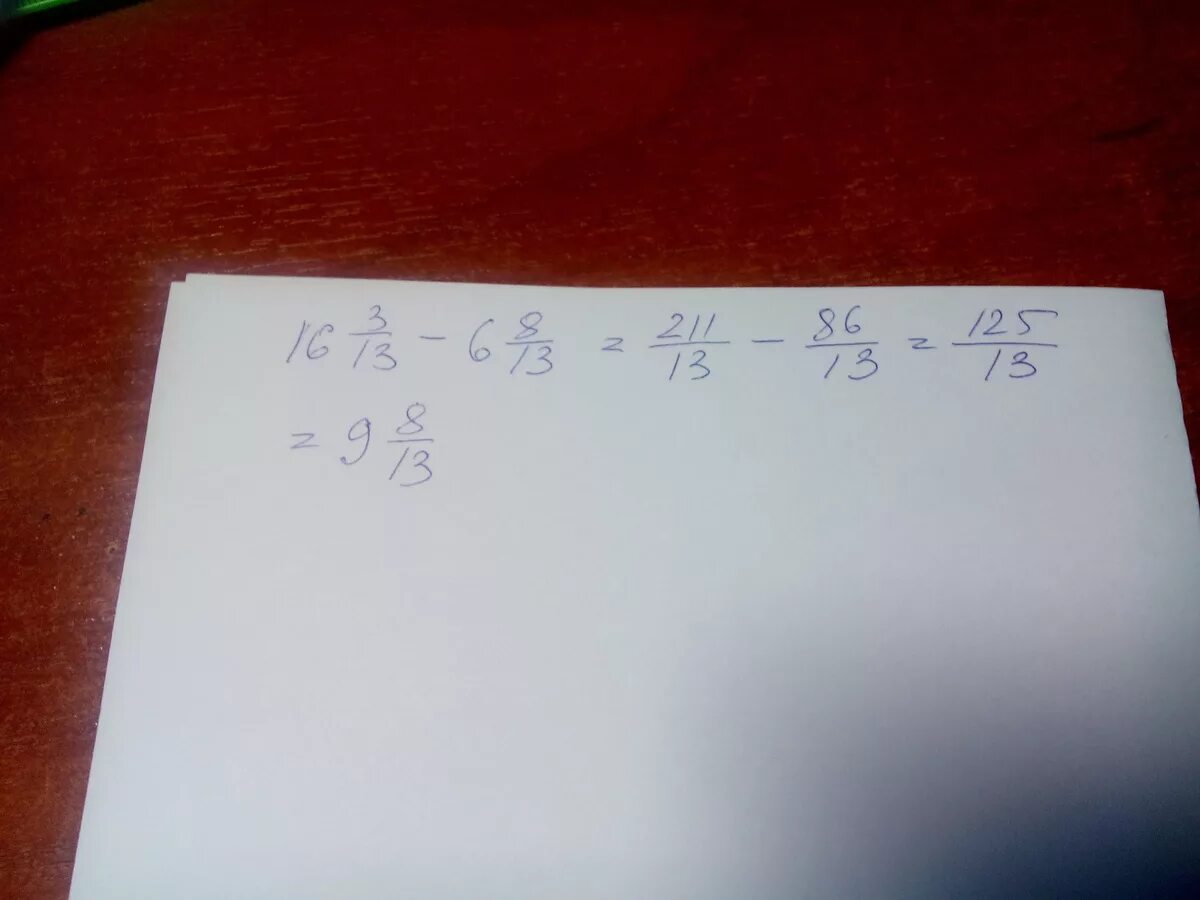 16 3/13 - 6 8/13 = 211/13 - 86/13 = 125/13
= 9 8/13